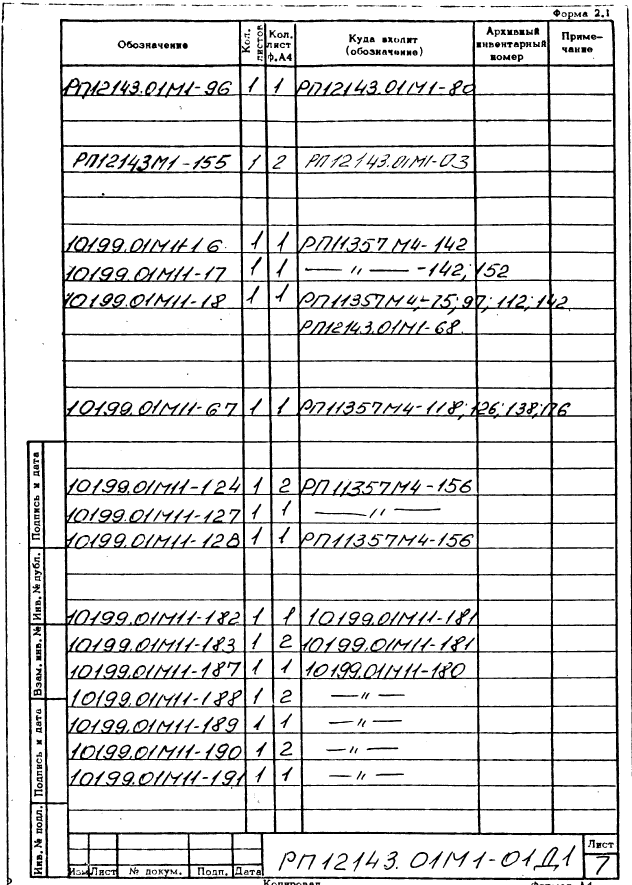 Форма 2.1
Обозначение Кол. листов Кол. лист ф.А4 Куда входит (обозначение) Архивный инвентарный номер Примечание
РП12143.01М1-96 1 1 РП12143.01М1-80
РП12143М1-155 1 2 РП12143.01М1-03
10199.01М11-16 1 1 РП11357М4-142
10199.01М11-17 1 1 — " — -142; 152
10199.01М11-18 1 1 РП11357М4-75; 97; 112; 142
РП12143.01М1-68
10199.01М11-67 1 1 РП11357М4-118; 126; 138; 176
10199.01М11-124 1 2 РП11357М4-156
10199.01М11-127 1 1 — " —
10199.01М11-128 1 1 РП11357М4-156
10199.01М11-182 1 1 10199.01М11-181
10199.01М11-183 1 2 10199.01М11-181
10199.01М11-187 1 1 10199.01М11-180
10199.01М11-188 1 2 — " —
10199.01М11-189 1 1 — " —
10199.01М11-190 1 2 — " —
10199.01М11-191 1 1 — " —
Подпись и дата
Инв. № дубл.
Взам. инв. №
Подпись и дата
Инв. № подл.
Изм Лист № докум. Подп. Дата
РП12143.01М1-01Д1
Лист
7
Копировал
Формат А4